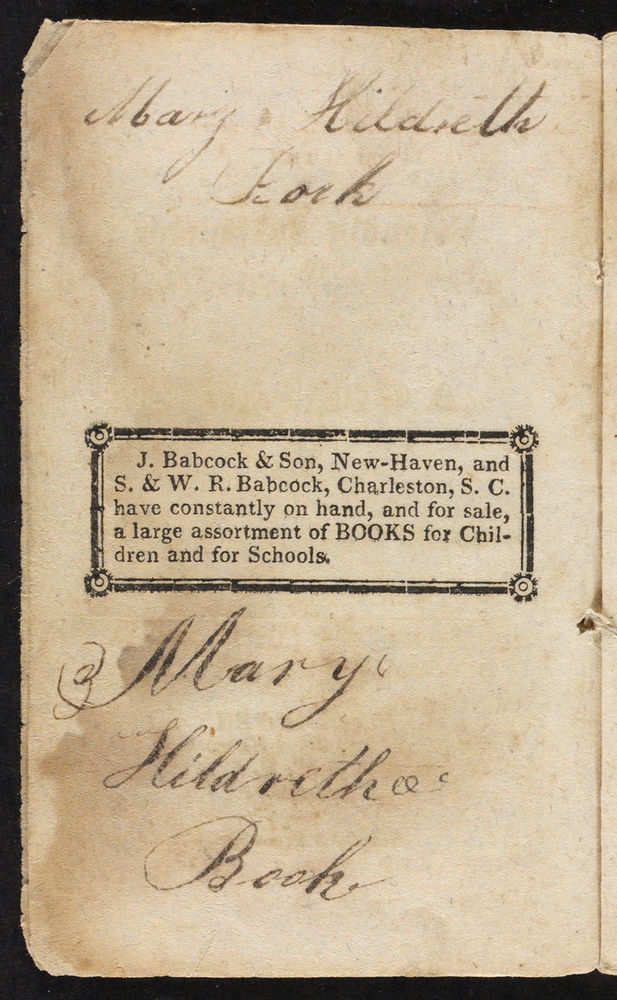 Mary Hildreth
Book
J. Babcock & Son, New-Haven, and
S. & W. R. Babcock, Charleston, S. C.
have constantly on hand, and for sale,
a large assortment of BOOKS for Chil-
dren and for Schools.
Mary
Hildreth
Book